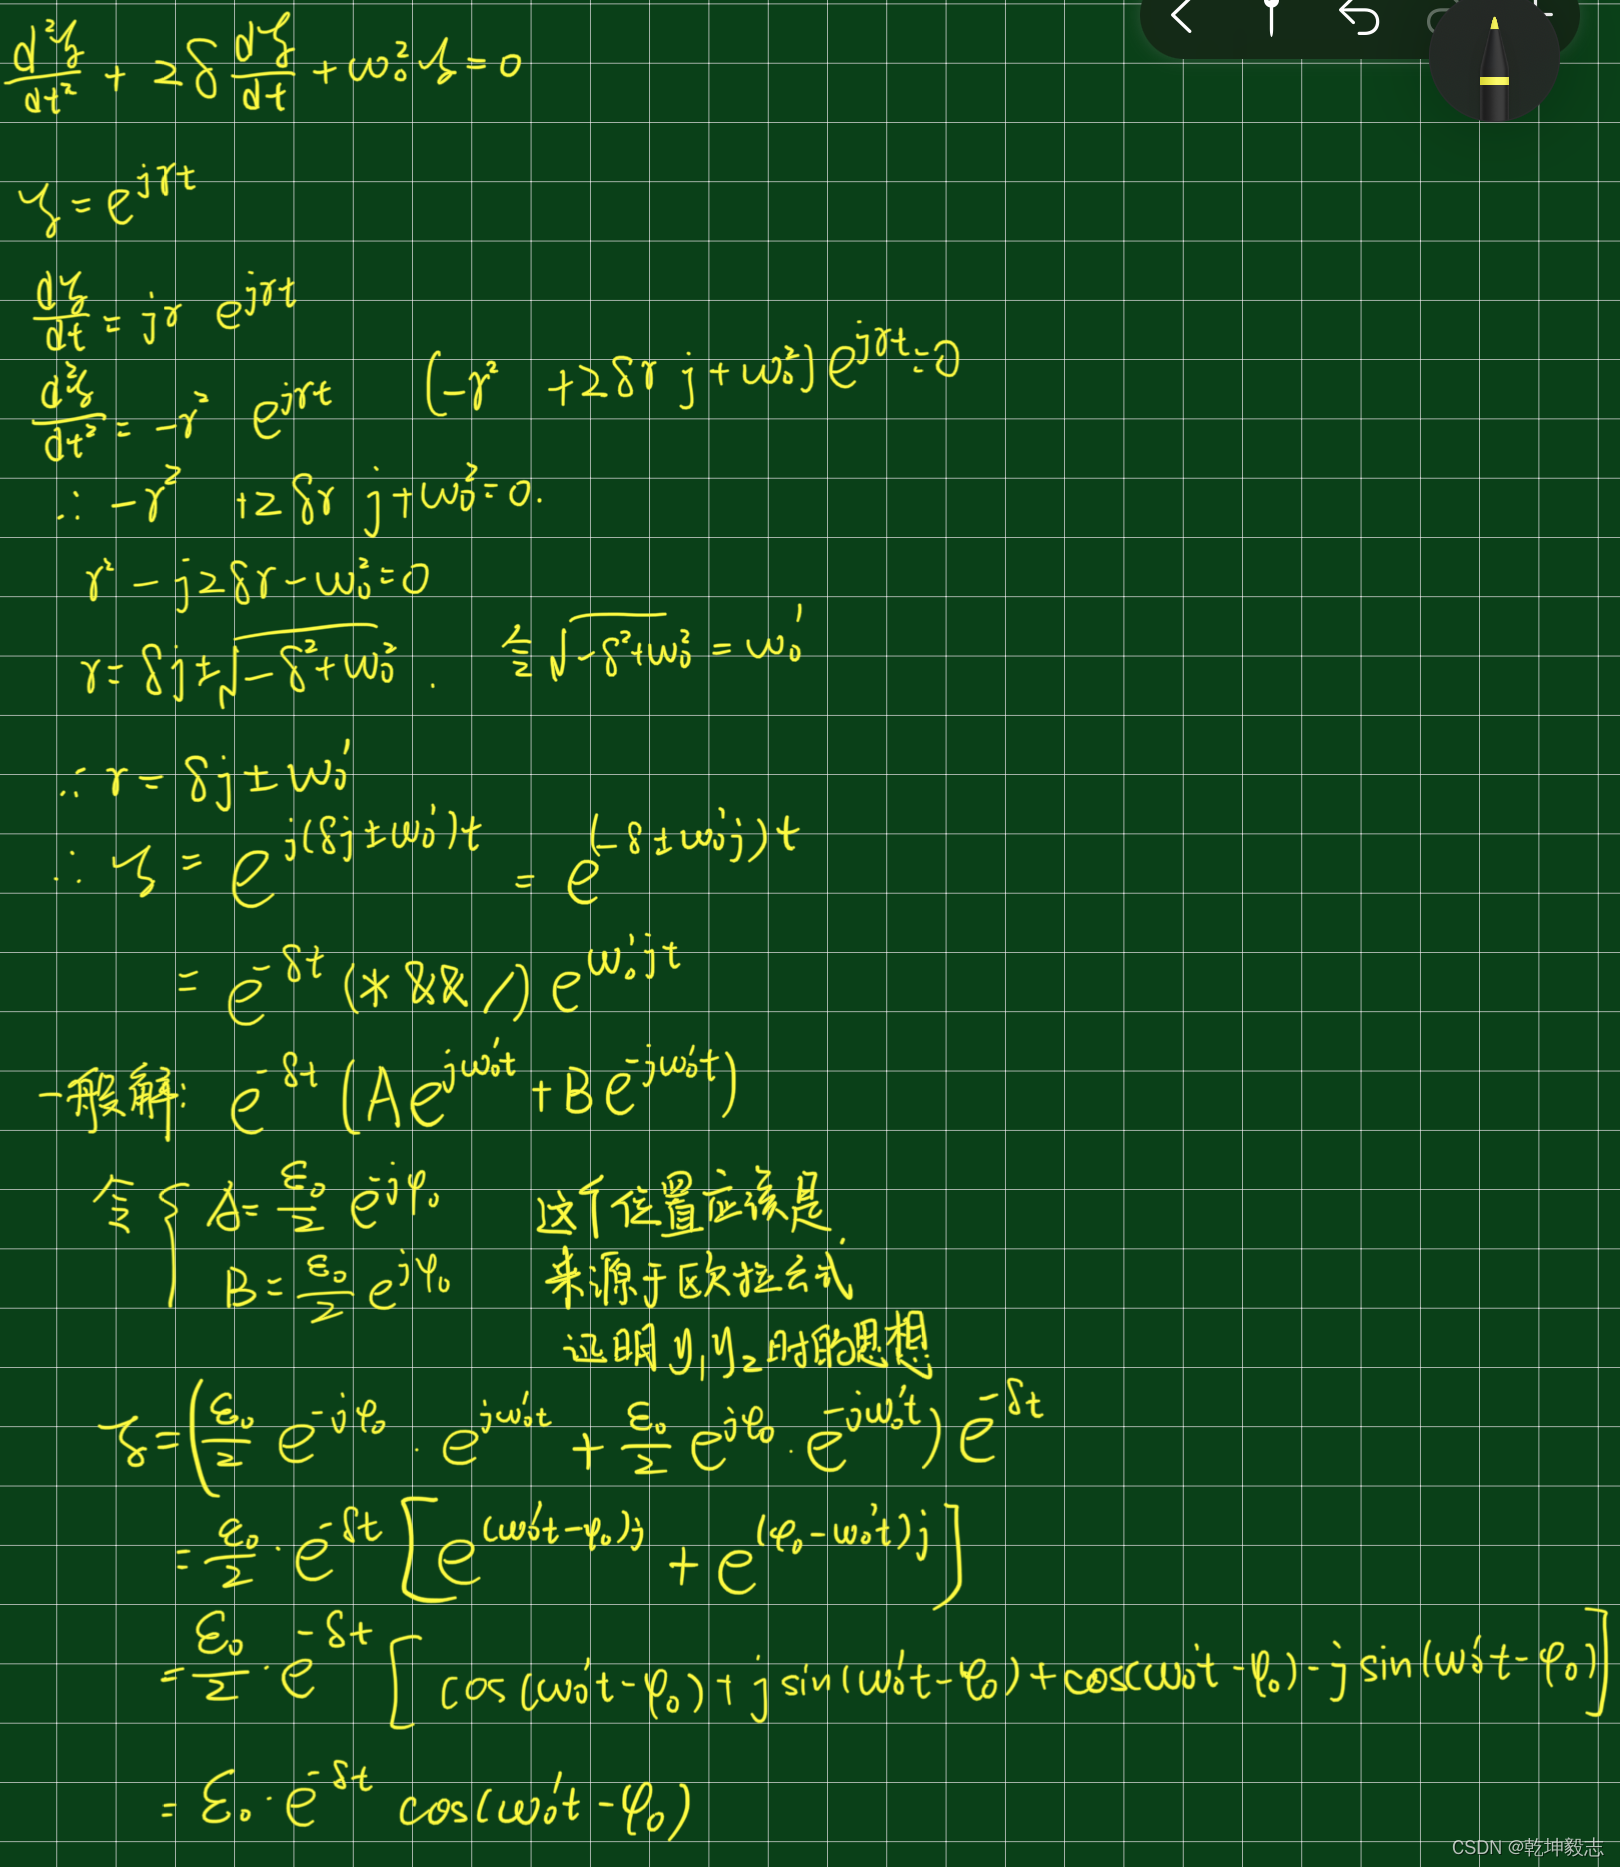 d²ξ/dt² + 2δ dξ/dt + ω₀²ξ = 0
ξ = e^{jγt}
dξ/dt = jγ e^{jγt}
d²ξ/dt² = -γ² e^{jγt} (-γ² + 2δγ j + ω₀²) e^{jγt} = 0
∴ -γ² + 2δγ j + ω₀² = 0.
γ² - j2δγ - ω₀² = 0
γ = δj ± √(-δ² + ω₀²) . 令 √(-δ² + ω₀²) = ω₀'
∴ γ = δj ± ω₀'
∴ ξ = e^{j(δj ± ω₀')t} = e^{(-δ ± ω₀'j)t}
= e^{-δt} (* && /) e^{ω₀'jt}
一般解: e^{-δt} (A e^{jω₀'t} + B e^{-jω₀'t})
令 { A = ε₀/2 e^{-jφ₀} 这个位置应该是
B = ε₀/2 e^{jφ₀} 来源于欧拉公式
证明 y₁ y₂ 时的思想
ξ = (ε₀/2 e^{-jφ₀} · e^{jω₀'t} + ε₀/2 e^{jφ₀} · e^{-jω₀'t}) e^{-δt}
= ε₀/2 · e^{-δt} [e^{(ω₀'t-φ₀)j} + e^{(φ₀-ω₀'t)j}]
= ε₀/2 · e^{-δt} [cos(ω₀'t-φ₀) + j sin(ω₀'t-φ₀) + cos(ω₀'t-φ₀) - j sin(ω₀'t-φ₀)]
= ε₀ · e^{-δt} cos(ω₀'t-φ₀)
CSDN @乾坤毅志